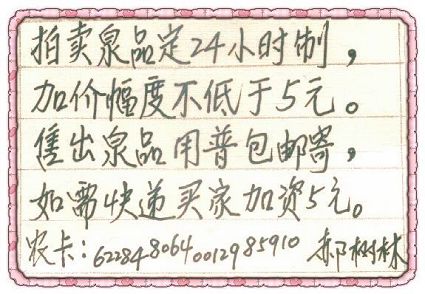 拍卖泉品定24小时制，
加价幅度不低于5元。
售出泉品用普包邮寄，
如需快递买家加资5元。
农卡：6228480640012985910 郝树林